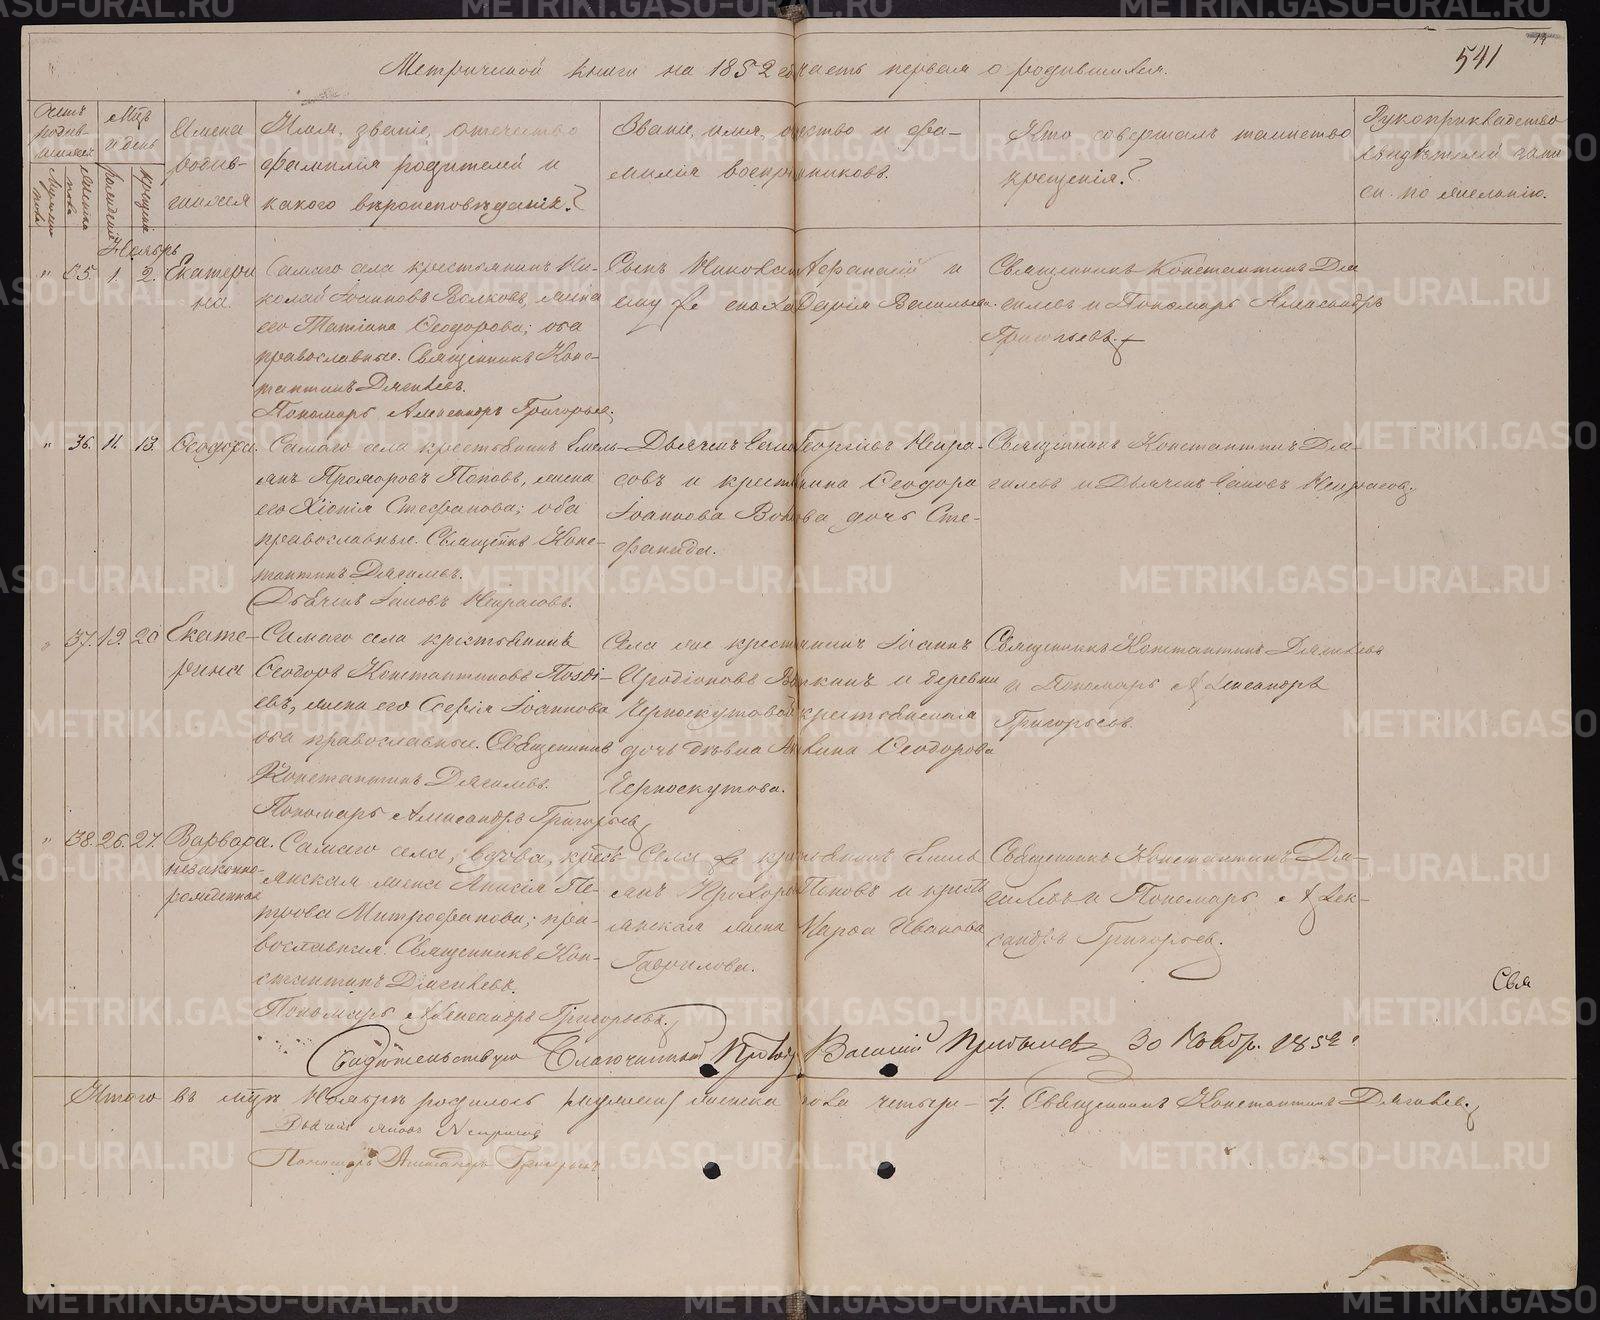 541
Метрической книги на 1852 годъ часть первая о родившихся.
Счетъ родив-шихся
Мужеска пола
Женска пола
Мѣсяцъ и день
рожденія
крещенія
Имена родив-шихся
Имя, званіе, отечество
фамилія родителей и
какого вѣроисповѣданія?
Званіе, имя, отчество и фа-
милія воспріемниковъ.
Кто совершалъ таинство
крещенія?
Рукоприкладство
свидѣтелей запи
си по желанію.
Ноябрь
" 35. 1. 2. Екатери
на
Самаго села крестьянинъ Ни-
колай Іоанновъ Волковъ, жена
его Татіана Ѳеодорова; оба
православные. Священникъ Конс-
тантинъ Дягилевъ.
Пономарь Александръ Григорьев.
Сынъ Николая Афанасій и
ему же сноха Дарія Васильева.
Священникъ Константинъ Дя
гилевъ и Пономарь Александръ
Григорьевъ.
" 36. 11. 13. Ѳеодора.
Самаго села крестьянинъ Емель-
янъ Прохоровъ Поповъ, жена
его Хіонія Стефанова; оба
православные. Священникъ Конс-
тантинъ Дягилевъ.
Дьячекъ Іаковъ Некрасовъ.
Дьячекъ Георгіевъ Некра-
совъ и Ѳеодора
Іоаннова дочь Сте-
фанида.
Священникъ Константинъ Дя-
гилевъ и Дьячекъ Іаковъ Некрасовъ
" 37. 19. 20 Екате-
рина
Самаго села крестьянинъ
Ѳеодоръ Константиновъ
жена его Іоаннова
оба православные. Священникъ
Константинъ Дягилевъ.
Пономарь Александръ Григорьев
Села же крестьянинъ Іоаннъ
Иродіоновъ и деревни
Черноскутовой крестьянская
дочь дѣвка Ѳеодорова
Черноскутова.
Священникъ Константинъ Дягилевъ
и Пономарь Александръ
Григорьевъ
" 38. 26. 27. Варвара.
незаконно-
рожденная
Самаго села, вдова, кресть
янская жена Анисія Пе-
трова Митрофанова; пра-
вославная. Священникъ Кон-
стантинъ Дягилевъ.
Пономарь Александръ Григорьевъ.
Села же крестьянинъ Емель
янъ Прохоровъ Поповъ и кресть
янская жена Марѳа Иванова
Гаврилова.
Священникъ Константинъ Дя-
гилевъ и Пономарь Алек-
сандръ Григорьев.
Свя
Свидѣтельствую Благочинный Василій 30 Ноябр. 1852
Итого въ мцѣ Ноябрѣ родилось женска пола четыри - 4. Священникъ Константинъ Дягилев.
Дьячекъ Іаковъ Некрасовъ
Пономарь Александръ Григорьевъ
METRIKI.GASO-URAL.RU